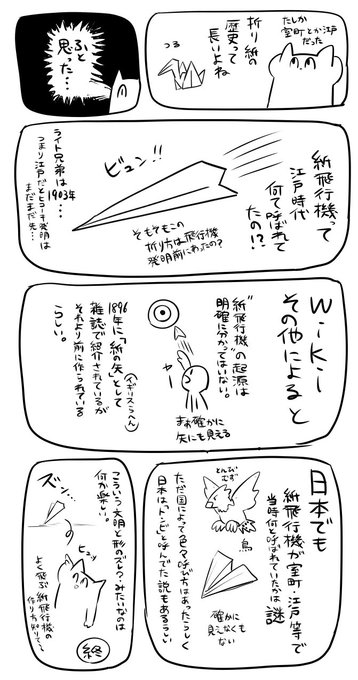 たしか
室町とか江戸
だった
折り紙の
歴史って
長いよね
つる
ふと
思った…
紙飛行機って
江戸時代
何て呼ばれて
たの!?
ビュン!!
そもそもこの
折り方は飛行機
発明前にあったの?
ライト兄弟は
1903年…
つまり江戸だとヒコーキ発明は
まだまだ先…
Wiki
その他によると
"紙飛行機"の起源は
明確に分かってはいない。
ヤー
まあ確かに
矢にも見える
1896年に「紙の矢」として
(イギリスらへん)
雑誌で紹介されているが
それより前に作られている
らしい。
日本でも
紙飛行機が室町・江戸等で
当時何と呼ばれていたかは謎
とんび
鳥
確かに
見えなくも
ない
ただ国によって色々呼び方はあったらしく
日本はトンビと呼んでた説もあるらしい
こういう文明と形のズレ
何か楽しい。
ズン…
ヒュッ
よく飛ぶ紙飛行機の
作り方知りて〜
終